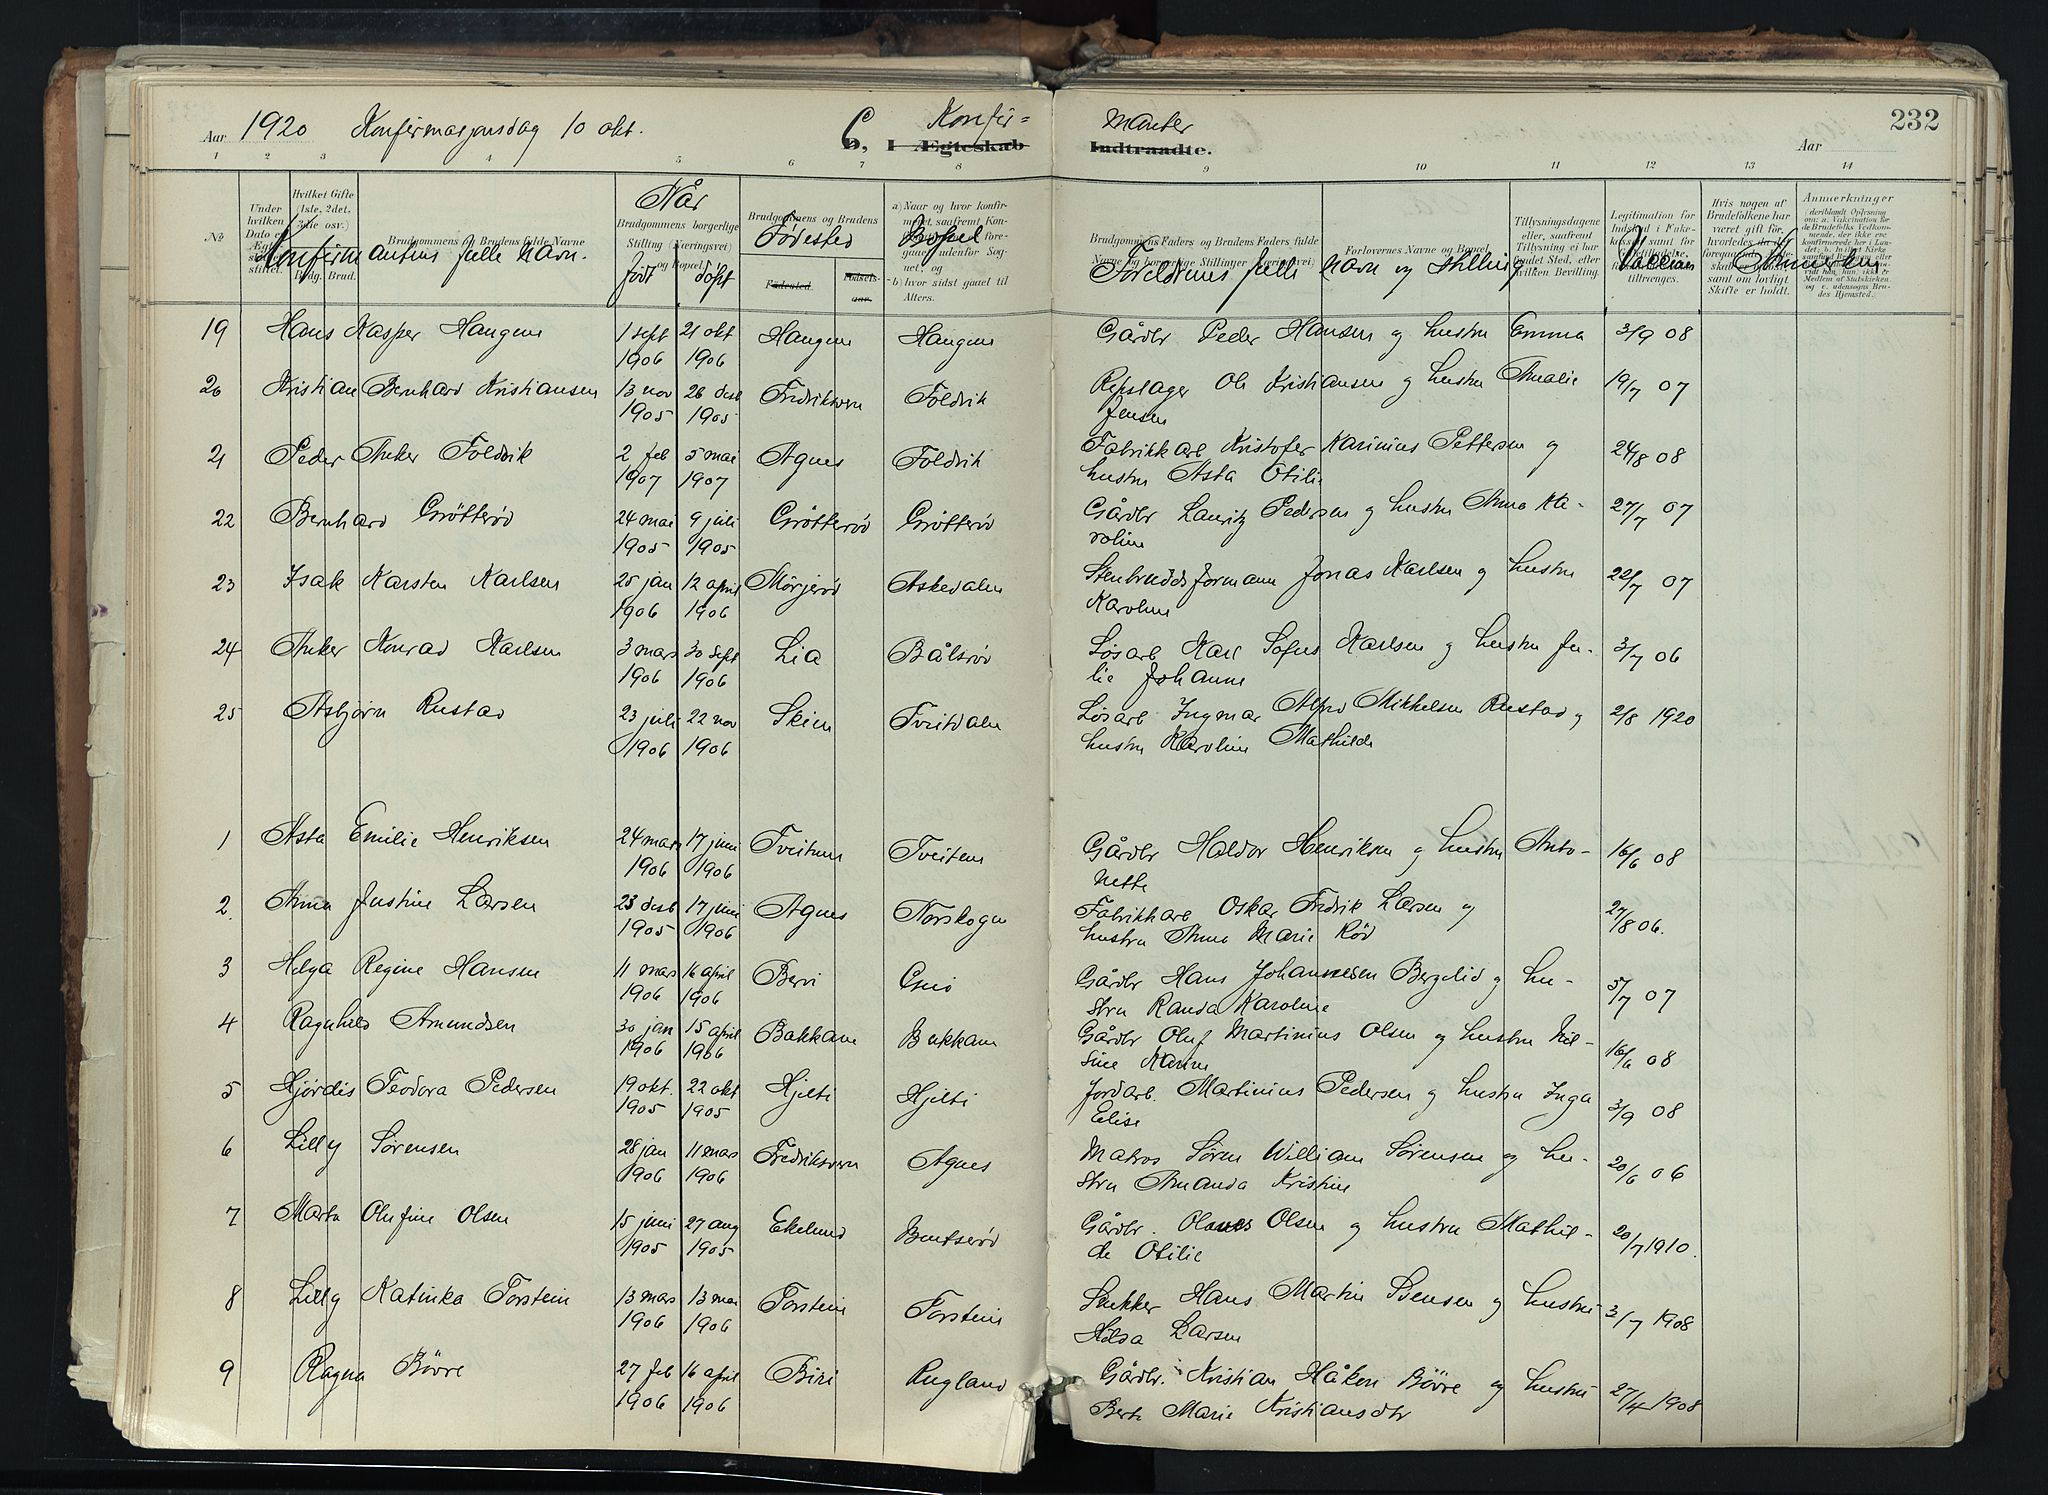 Aar 1920 Konfirmasjonsdag 10 okt. C, Konfir=
manter
232
B, I Ægteskab Indtraadte.
Aar
1 2 3 4 5 6 7 8 9 10 11 12 13 14
№
Under hvilken Dato
Hvilket Gifte (1ste, 2det, 3die osv.)
Brudg. Brud.
Brudgommens og Brudens fulde Navne
Konfirmantens fulle navn.
Når
Brudgommens borgerlige Stilling (Næringsvei) og Bopæl
født døpt
Brudgommens og Brudens
Fødested
Fødested Fødsels-aar.
Bopel
b) hvor sidst gaaet til Alters.
Brudgommens Faders og Brudens Faders fulde Navne og borgerlige Stillinger (Næringsvei)
Foreldrenes fulle navn og stilling
Forlovernes Navne og Bopæl
Tillysningsdagene eller, saafremt Tillysning ei har fundet Sted, efter hvilken Bevilling.
Hvis nogen af Brudefolkene har været gift før,
Skifte er holdt.
Anmerkninger
19 Hans Kasper Haugene 1 sept 1906 21 okt 1906 Haugene Haugene Gårdbr Peder Hansen og hustru Emma 3/9 08
20 Kristian Bernhard Kristiansen 13 nov 1905 26 des 1905 Fredriksvern Foldvik Repslager Ole Kristiansen og hustru Amalie Jensen 19/7 07
21 Peder Anker Foldvik 2 feb 1907 5 mai 1907 Agnes Foldvik Fabrikkarb Kristofer Karinius Pettersen og hustru Asta Otilie 24/8 08
22 Bernhard Grøtterød 24 mai 1905 9 juli 1905 Grøtterød Grøtterød Gårdbr Lauritz Pedersen og hustru Anna Karoline 27/7 07
23 Isak Karsten Karlsen 25 jan 1906 12 april 1906 Mørjerød Askedalen Stenbruddsformann Jonas Karlsen og hustru Karoline 22/7 07
24 Anker Konrad Karlsen 3 mars 1906 30 sept 1906 Lia Bålsrød Løsarb Karl Sofus Karlsen og hustru Julie Johanne 3/7 06
25 Asbjørn Rustad 23 juli 1906 22 nov 1906 Skien Tveitdalen Løsarb Ingmar Alfred Mikkelsen Rustad og hustru Karoline Mathilde 2/8 1920
1 Asta Emilie Henriksen 24 mars 1906 17 juni 1906 Tveitene Tveitene Gårdbr Haldor Henriksen og hustru Antonette 16/6 08
2. Anna Justine Larsen 23 desb 1905 17 juni 1906 Agnes Torskogen Fabrikkarb Oskar Fredrik Larsen og hustru Anna Marie Rød 27/8 06.
3 Helga Regine Hansen 11 mars 1906 16 april 1906 Gårdbr Hans Johannesen Bergelid og hustru Randa Karoline 5/7 07
4 Ragnhild Amundsen 30 jan 1906 15 april 1906 Bakkane Bakkane Gårdbr Oluf Martinius Olsen og hustru Nilsine Hanna 16/6 08
5 Hjørdis Teodora Pedersen 19 okt. 1905 22 okt 1905 Hjelti Hjelti Jordarb. Martinius Pedersen og hustru Inga Elise 3/9 08
6 Lilly Sørensen 28 jan 1906 11 mars 1906 Fredriksvern Agnes Matros Søren William Sørensen og hustru Amanda Kristine 20/6 06
7 Marta Olufine Olsen 15 juni 1905 27 aug 1905 Ekelund Bentserød Gårdbr. Olaves Olsen og hustru Mathilde Otilie 20/7 1910.
8 Lilly Katinka Torstein 13 mars 1906 13 mai 1906 Torstein Torstein Snekker Hans Martin Svensen og hustru Hilda Larsen 3/7 1908
9 Ragna Bövre 27 feb 1906 16 april 1906 Biri Rugland Gårdbr. Kristian Håken Bövre og hustru Berte Marie Kristiansdtr 27/4 1908